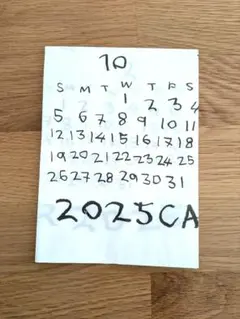 10
S M T W T F S
1 2 3 4
5 6 7 8 9 10 11
12 13 14 15 16 17 18
19 20 21 22 23 24 25
26 27 28 29 30 31
2025CA